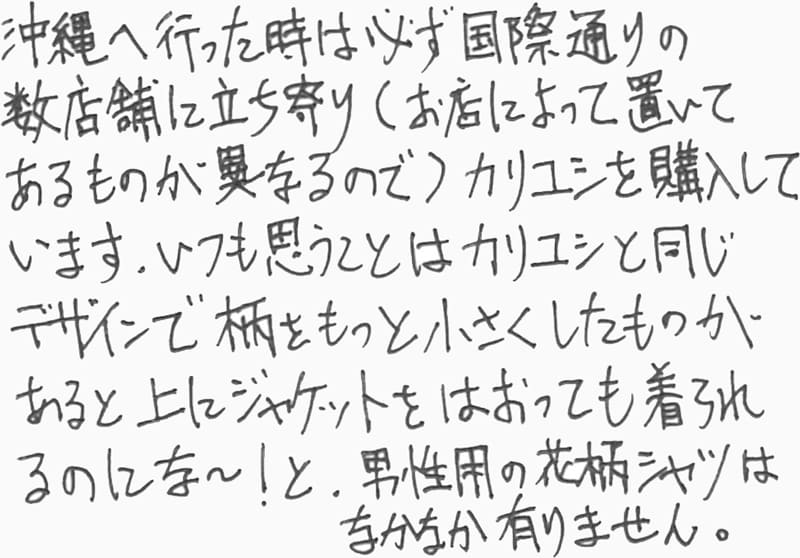 沖縄へ行った時は必ず国際通りの
数店舗に立ち寄り(お店によって置いて
あるものが異なるので)カリユシを購入して
います.いつも思うことはカリユシと同じ
デザインで柄をもっと小さくしたものが
あると上にジャケットをはおっても着られ
るのにな〜!と.男性用の花柄シャツは
なかなか有りません。